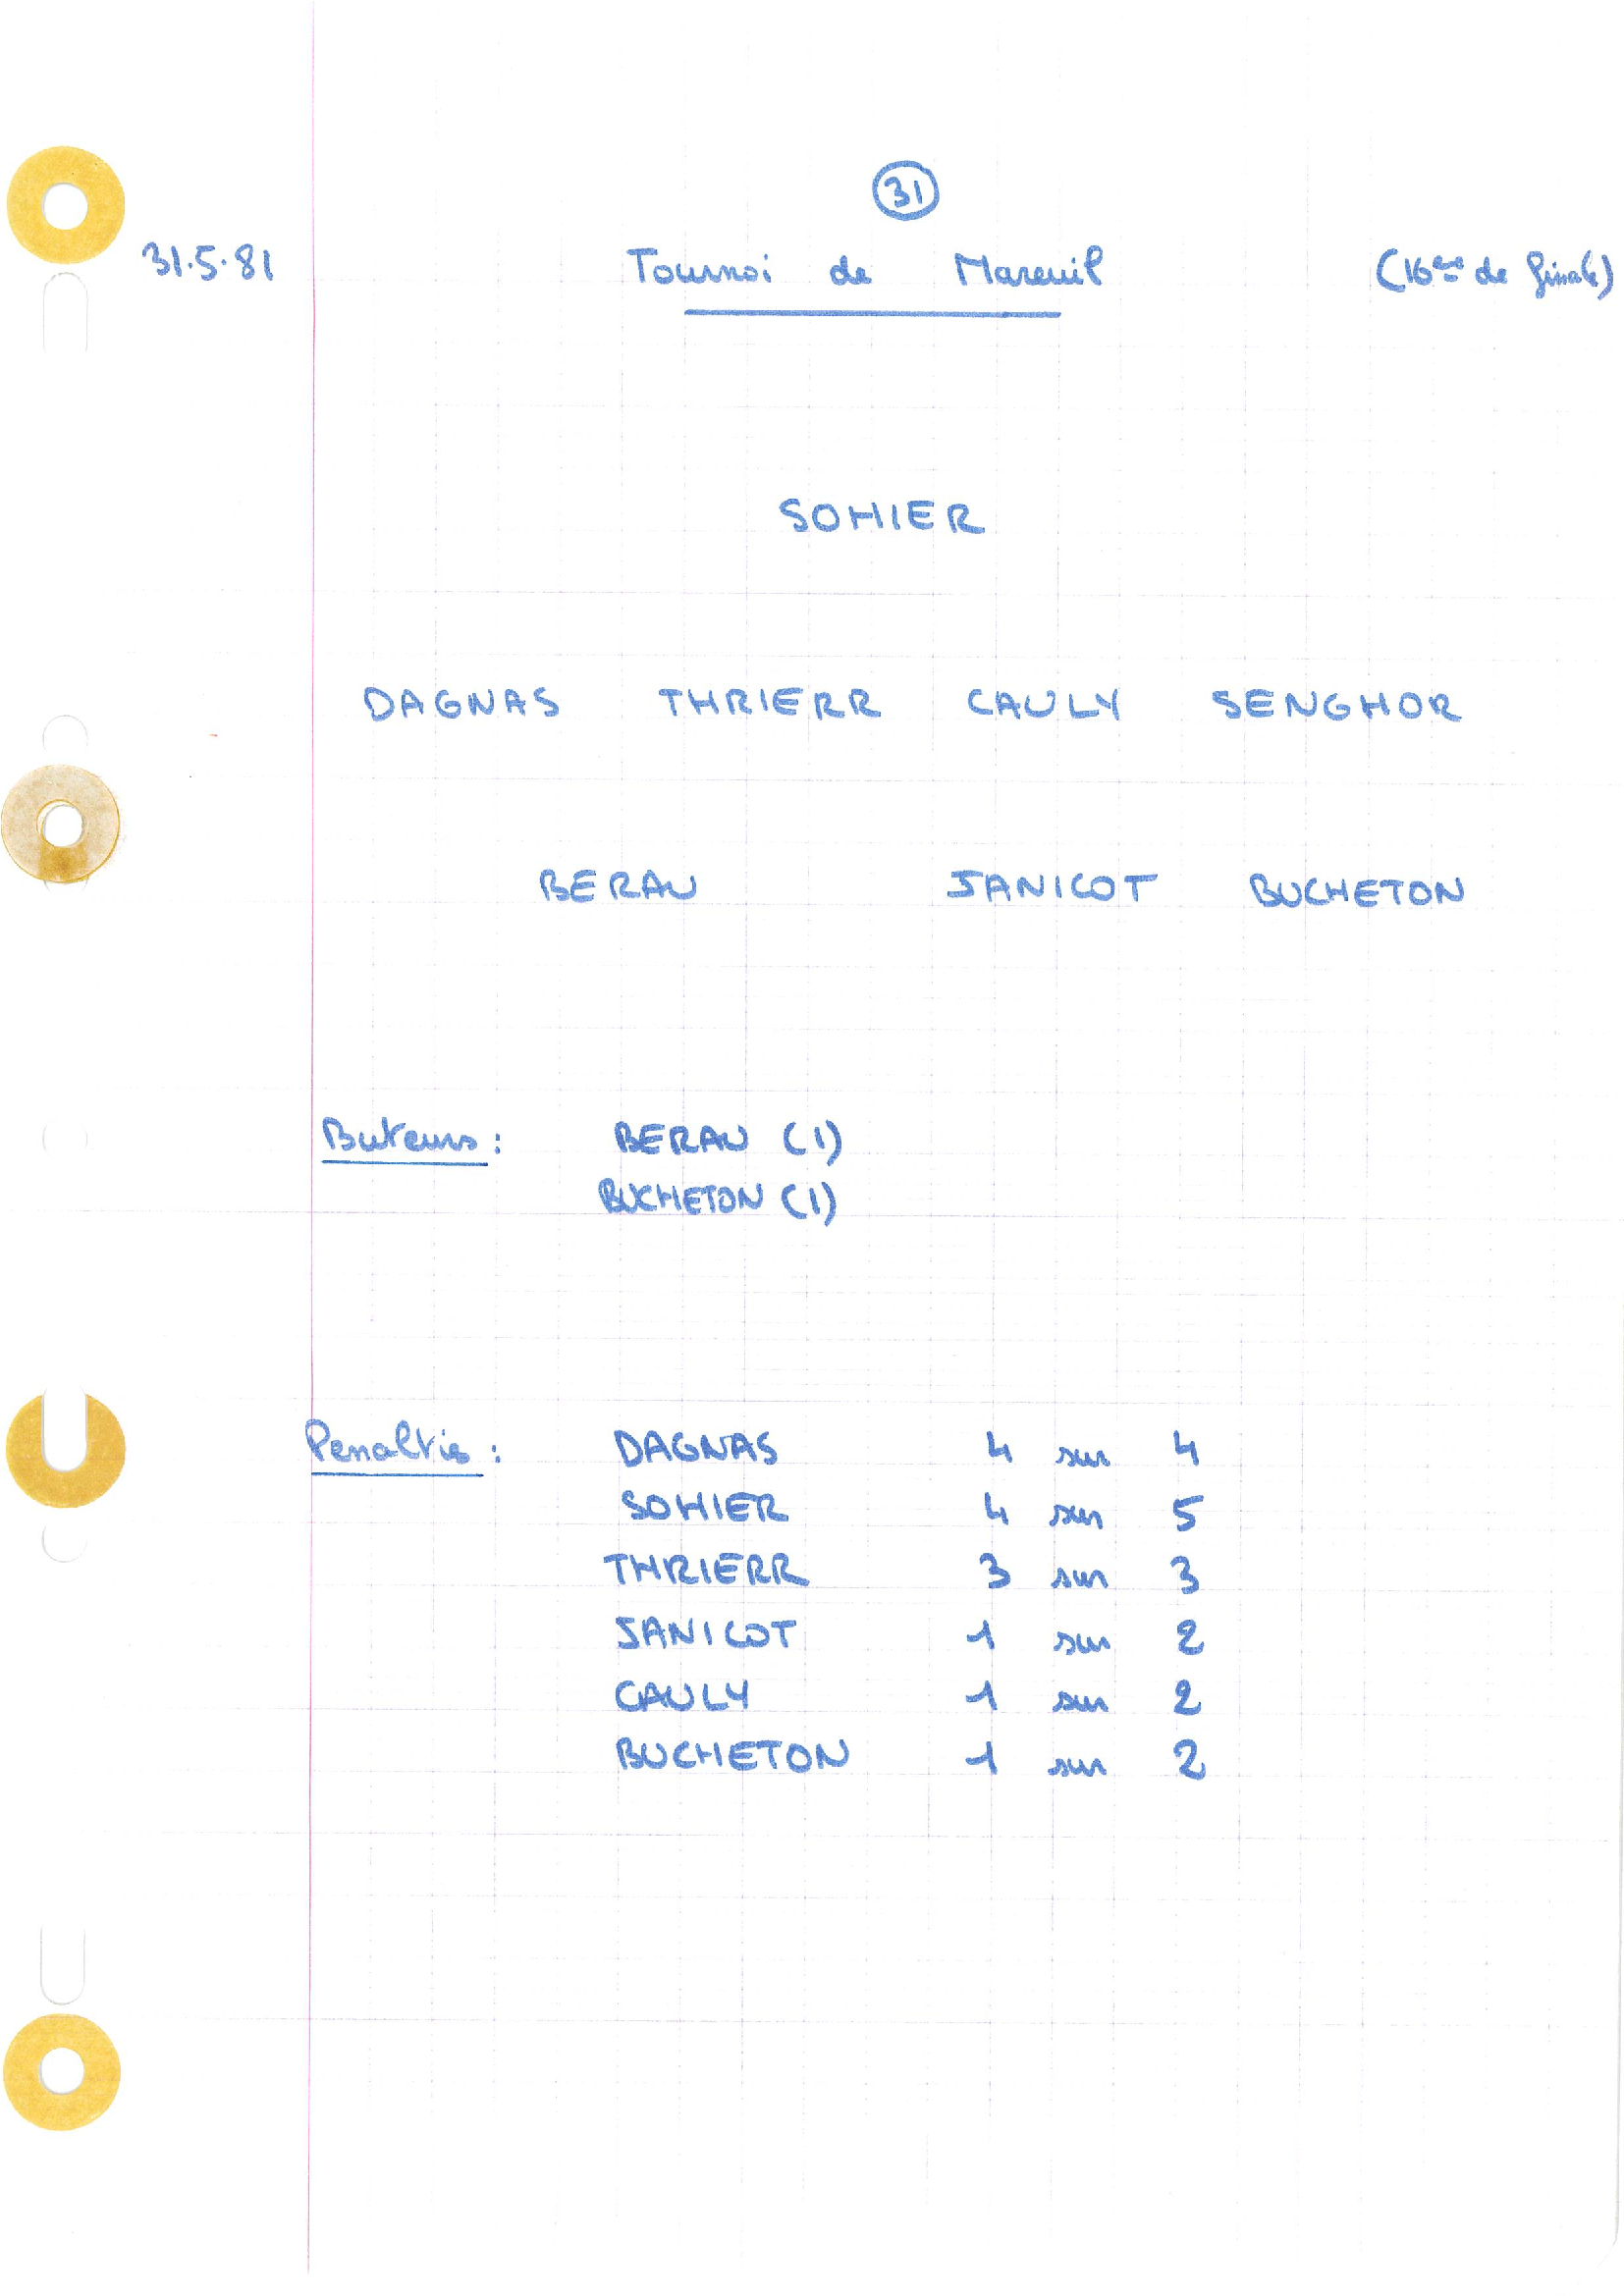 31
31.5.81 Tournoi de Mareuil (16ème de finale)
SOHIER
DAGNAS THRIERR CAULY SENGHOR
BERAU JANICOT BUCHETON
Buteurs : BERAU (1)
BUCHETON (1)
Penaltis : DAGNAS 4 sur 4
SOHIER 4 sur 5
THRIERR 3 sur 3
JANICOT 1 sur 2
CAULY 1 sur 2
BUCHETON 1 sur 2